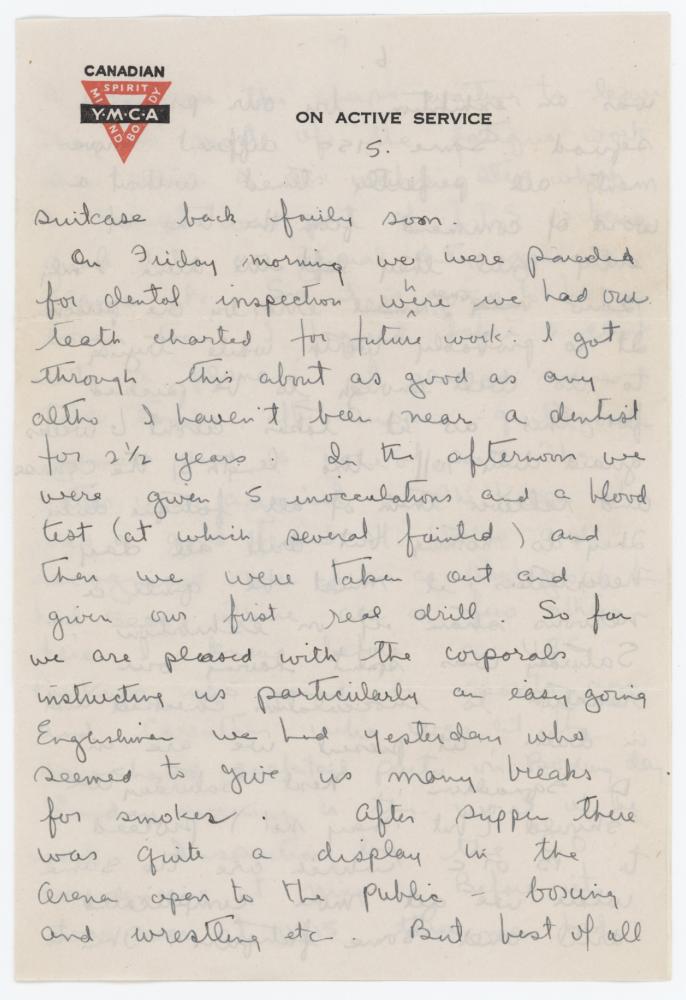 CANADIAN
SPIRIT
MIND
BODY
Y·M·C·A
ON ACTIVE SERVICE
5.
suitcase back fairly soon.
On Friday morning we were paraded
for dental inspection where we had our
teath charted for future work. I got
through this about as good as any
altho I haven't been near a dentist
for 2½ years. In the afternoon we
were given 5 innoculations and a blood
test (at which several fainted) and
then we were taken out and
given our first real drill. So far
we are pleased with the corporals
instructing us particularly an easy going
Englishman we had yesterday who
seemed to give us many breaks
for smokes. After supper there
was quite a display in the
arena open to the public - boxing
and wrestling etc. But best of all